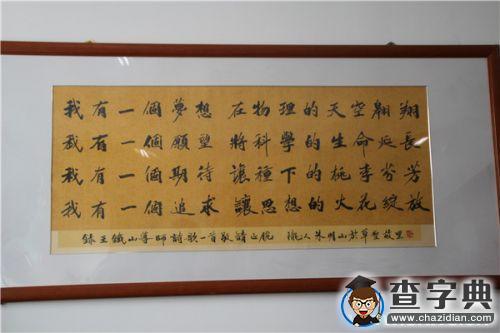 我有一個夢想 在物理的天空翱翔
我有一個願望 將科學的生命延長
我有一個期待 讓種下的桃李芬芳
我有一個追求 讓思想的火花綻放
錄王鐵山尊師詩歌一首敬請正腕 隴人朱明山於草聖故里
查字典
www.chazidian.com